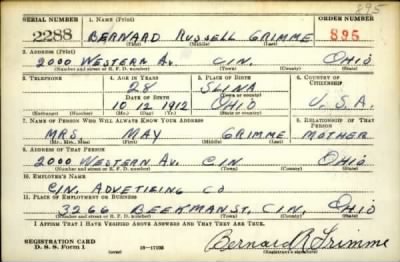 895
SERIAL NUMBER 1. NAME (Print) ORDER NUMBER
2288 BERNARD RUSSELL GRIMME 895
(First) (Middle) (Last)
2. ADDRESS (Print)
2000 WESTERN AV. CIN. OHIO
(Number and street or R. F. D. number) (Town) (County) (State)
3. TELEPHONE 4. AGE IN YEARS 5. PLACE OF BIRTH 6. COUNTRY OF CITIZENSHIP
28 SLINA
DATE OF BIRTH (Town or county)
10 12 1912 OHIO U.S.A.
(Exchange) (Number) (Mo.) (Day) (Yr.) (State or country)
7. NAME OF PERSON WHO WILL ALWAYS KNOW YOUR ADDRESS 8. RELATIONSHIP OF THAT PERSON
MRS MAY GRIMME MOTHER
(Mr., Mrs., Miss) (First) (Middle) (Last)
9. ADDRESS OF THAT PERSON
2000 WESTERN AV. CIN OHIO
(Number and street or R. F. D. number) (Town) (County) (State)
10. EMPLOYER'S NAME
CIN. ADVETIZING CO
11. PLACE OF EMPLOYMENT OR BUSINESS
3266 BEEKMAN ST. CIN. OHIO
(Number and street or R. F. D. number) (Town) (County) (State)
I AFFIRM THAT I HAVE VERIFIED ABOVE ANSWERS AND THAT THEY ARE TRUE.
REGISTRATION CARD
D. S. S. Form 1 16—17105 Bernard R Grimme